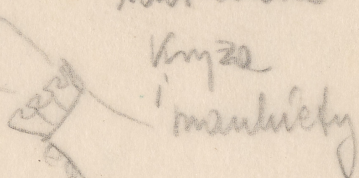 Kryza
i mankiety